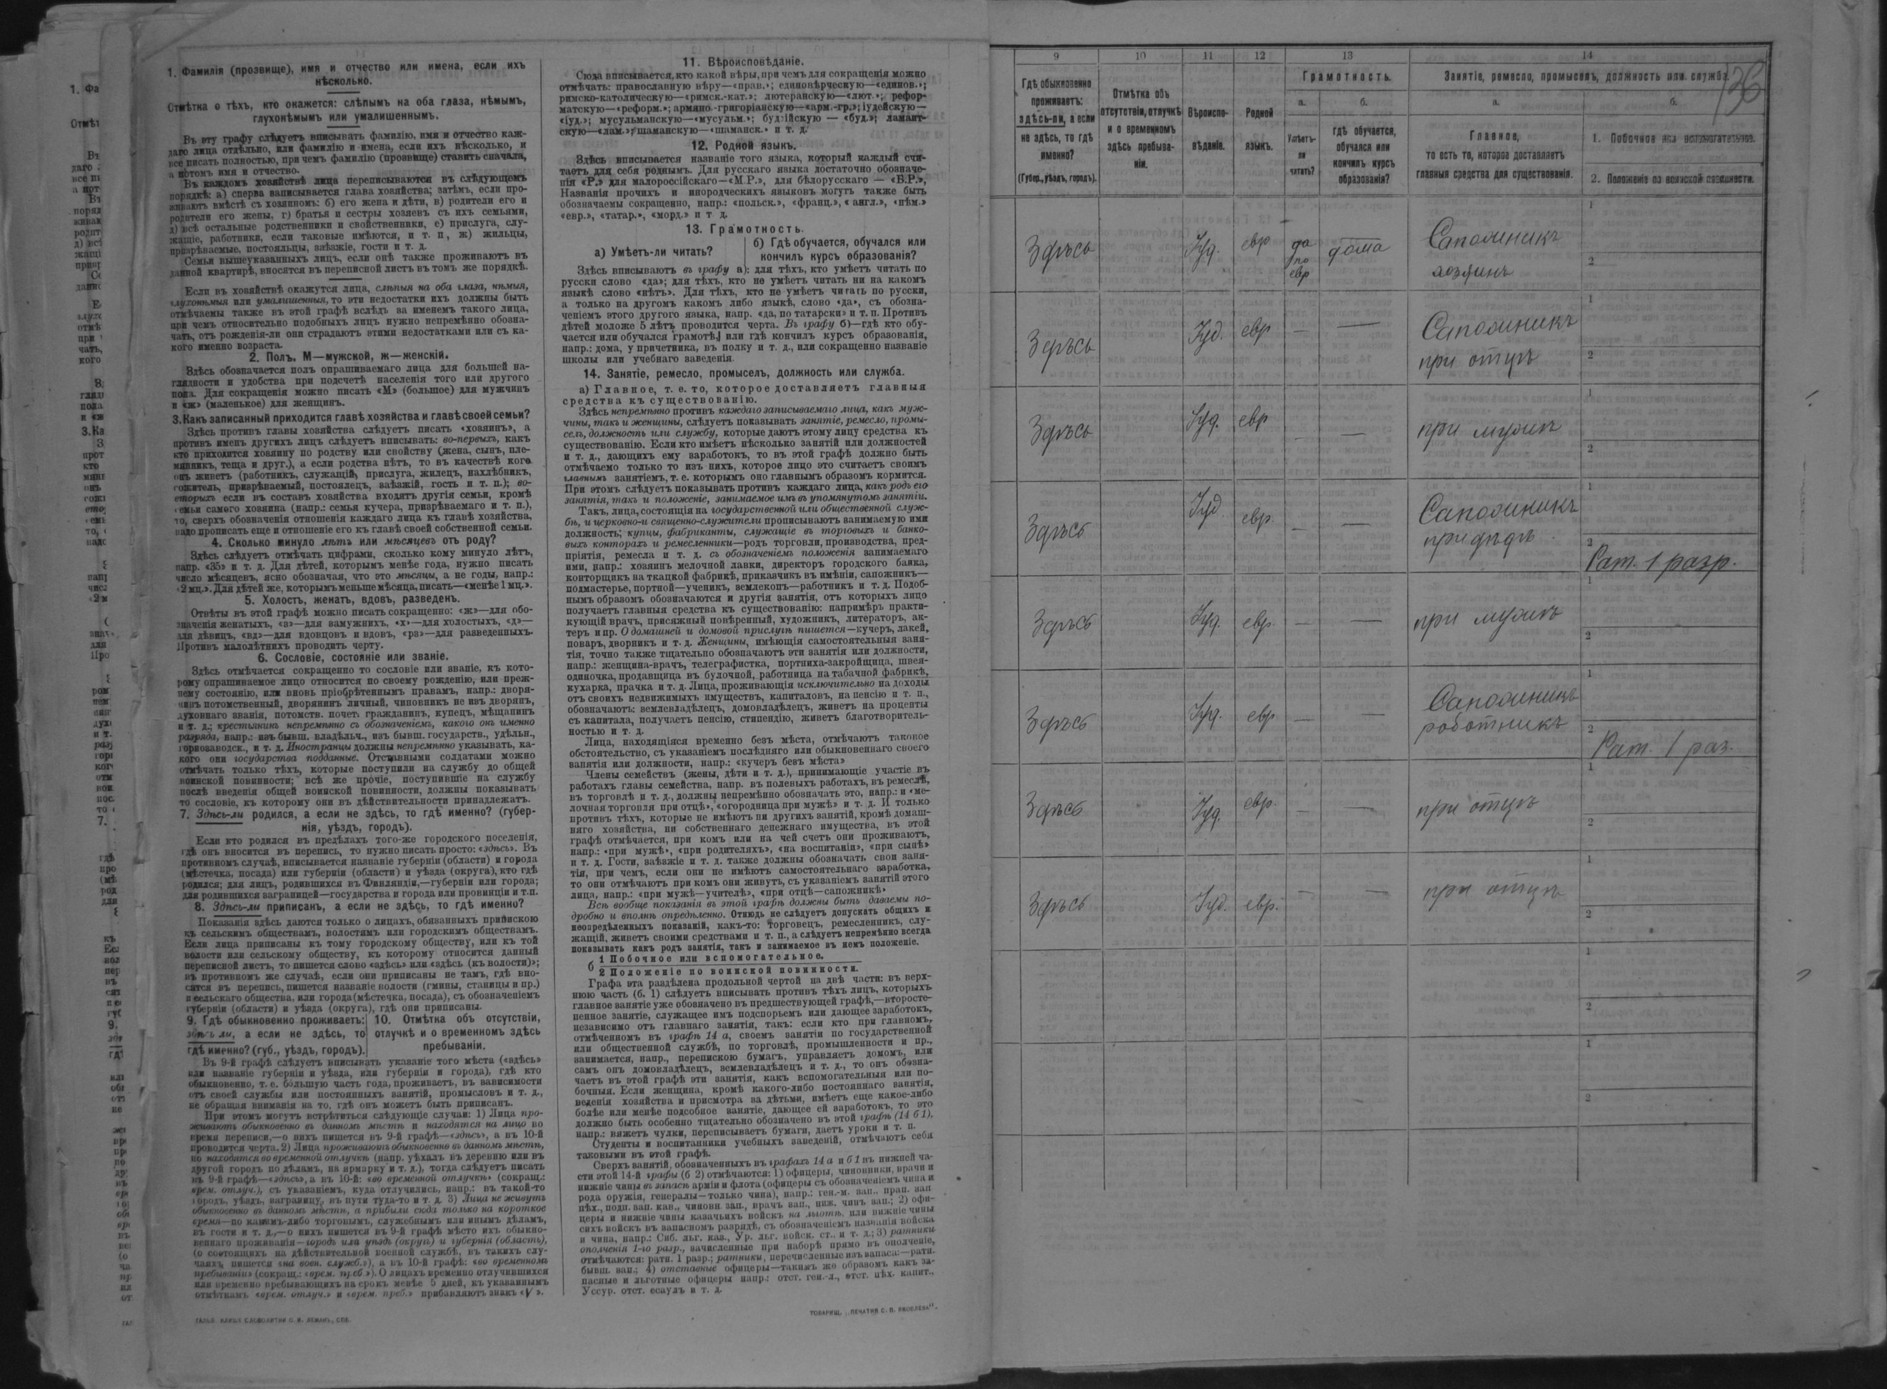 1. Фамилія (прозвище), имя и отчество или имена, если ихъ
нѣсколько.
Отмѣтка о тѣхъ, кто окажется: слѣпымъ на оба глаза, нѣмымъ,
глухонѣмымъ или умалишеннымъ.
Въ эту графу слѣдуетъ вписывать фамилію, имя и отчество каж-
даго лица отдѣльно, или фамилію и имена, если ихъ нѣсколько, и
все писать полностью, при чемъ фамилію (прозвище) ставить сначала,
а потомъ имя и отчество.
Въ каждомъ хозяйствѣ лица переписываются въ слѣдующемъ
порядкѣ: а) сперва записывается глава хозяйства; затѣмъ, если про-
живаютъ вмѣстѣ съ хозяиномъ: б) его жена и дѣти, в) родители его и
родители его жены, г) братья и сестры хозяевъ съ ихъ семьями,
д) всѣ остальные родственники и свойственники, е) прислуга, слу-
жащіе, работники, если таковые имѣются, и т. п., ж) жильцы,
призрѣваемые, постояльцы, заѣзжіе, гости и т. д.
Семьи вышеуказанныхъ лицъ, если онѣ также проживаютъ въ
данной квартирѣ, вносятся въ переписной листъ въ томъ же порядкѣ.
Если въ хозяйствѣ окажутся лица, слѣпыя на оба глаза, нѣмыя,
глухонѣмыя или умалишенныя, то эти недостатки ихъ должны быть
отмѣчаемы также въ этой графѣ вслѣдъ за именемъ такого лица,
при чемъ относительно подобныхъ лицъ нужно непремѣнно обозна-
чать, отъ рожденія-ли они страдаютъ этими недостатками или съ ка-
кого именно возраста.
2. Полъ. М—мужской, ж—женскій.
Здѣсь обозначается полъ опрашиваемаго лица для большей на-
глядности и удобства при подсчетѣ населенія того или другого
пола. Для сокращенія можно писать «М» (большое) для мужчинъ
и «ж» (маленькое) для женщинъ.
3. Какъ записанный приходится главѣ хозяйства и главѣ своей семьи?
Здѣсь противъ главы хозяйства слѣдуетъ писать «хозяинъ», а
противъ именъ другихъ лицъ слѣдуетъ вписывать: во-первыхъ, какъ
кто приходится хозяину по родству или свойству (жена, сынъ, пле-
мянникъ, теща и друг.), а если родства нѣтъ, то въ качествѣ кого
онъ живетъ (работникъ, служащій, прислуга, жилецъ, нахлѣбникъ,
сожитель, призрѣваемый, постоялецъ, заѣзжій, гость и т. п.); во-
вторыхъ если въ составъ хозяйства входятъ другія семьи, кромѣ
семьи самого хозяина (напр.: семья кучера, призрѣваемаго и т. п.),
то, сверхъ обозначенія отношенія каждаго лица къ главѣ хозяйства,
надо прописать еще и отношеніе его къ главѣ своей собственной семьи.
4. Сколько минуло лѣтъ или мѣсяцевъ отъ роду?
Здѣсь слѣдуетъ отмѣчать цифрами, сколько кому минуло лѣтъ,
напр. «35» и т. д. Для дѣтей, которымъ менѣе года, нужно писать
число мѣсяцевъ, ясно обозначая, что это мѣсяцы, а не годы, напр.:
«2 мц.». Для дѣтей же, которымъ меньше мѣсяца, писать—«менѣе 1 мц.».
5. Холостъ, женатъ, вдовъ, разведенъ.
Отвѣты въ этой графѣ можно писать сокращенно: «ж»—для обо-
значенія женатыхъ, «з»—для замужнихъ, «х»—для холостыхъ, «д»—
для дѣвицъ, «вд»—для вдовцовъ и вдовъ, «рз»—для разведенныхъ.
Противъ малолѣтнихъ проводить черту.
6. Сословіе, состояніе или званіе.
Здѣсь отмѣчается сокращенно то сословіе или званіе, къ кото-
рому опрашиваемое лицо относится по своему рожденію, или преж-
нему состоянію, или вновь пріобрѣтеннымъ правамъ, напр.: дворя-
нинъ потомственный, дворянинъ личный, чиновникъ не изъ дворянъ,
духовнаго званія, потомств. почет. гражданинъ, купецъ, мѣщанинъ
и т. д.; крестьянинъ непремѣнно съ обозначеніемъ, какого онъ именно
разряда, напр.: изъ бывш. владѣльч., изъ бывш. государств., удѣльн.,
горнозаводск., и т. д. Иностранцы должны непремѣнно указывать, ка-
кого они государства подданные. Отставными солдатами можно
отмѣчать только тѣхъ, которые поступили на службу до общей
воинской повинности; всѣ же прочіе, поступившіе на службу
послѣ введенія общей воинской повинности, должны показывать
то сословіе, къ которому они въ дѣйствительности принадлежатъ.
7. Здѣсь-ли родился, а если не здѣсь, то гдѣ именно? (губер-
нія, уѣздъ, городъ).
Если кто родился въ предѣлахъ того-же городского поселенія,
гдѣ онъ вносится въ перепись, то нужно писать просто: «здѣсь». Въ
противномъ случаѣ, вписывается названіе губерніи (области) и города
(мѣстечка, посада) или губерніи (области) и уѣзда (округа), кто гдѣ
родился; для лицъ, родившихся въ Финляндіи,—губерніи или города;
для родившихся заграницей—государства и города или провинціи и т.п.
8. Здѣсь-ли приписанъ, а если не здѣсь, то гдѣ именно?
Показанія здѣсь даются только о лицахъ, обязанныхъ припискою
къ сельскимъ обществамъ, волостямъ или городскимъ обществамъ.
Если лица приписаны къ тому городскому обществу, или къ той
волости или сельскому обществу, къ которому относится данный
переписной листъ, то пишется слово «здѣсь» или «здѣсь (къ волости)»;
въ противномъ же случаѣ, если они приписаны не тамъ, гдѣ вно-
сятся въ перепись, пишется названіе волости (гмины, станицы и пр.)
и сельскаго общества, или города (мѣстечка, посада), съ обозначеніемъ
губерніи (области) и уѣзда (округа), гдѣ они приписаны.
9. Гдѣ обыкновенно проживаетъ:
здѣсь ли, а если не здѣсь, то
гдѣ именно? (губ., уѣздъ, городъ).
10. Отмѣтка объ отсутствіи,
отлучкѣ и о временномъ здѣсь
пребываніи.
Въ 9-й графѣ слѣдуетъ вписывать указаніе того мѣста («здѣсь»
или названіе губерніи и уѣзда, или губерніи и города), гдѣ кто
обыкновенно, т. е. большую часть года, проживаетъ, въ зависимости
отъ своей службы или постоянныхъ занятій, промысловъ и т. д.,
не обращая вниманія на то, гдѣ онъ можетъ быть приписанъ.
При этомъ могутъ встрѣтиться слѣдующіе случаи: 1) Лица про-
живаютъ обыкновенно въ данномъ мѣстѣ и находятся на лицо во
время переписи,—о нихъ пишется въ 9-й графѣ—«здѣсь», а въ 10-й
проводится черта. 2) Лица проживаютъ обыкновенно въ данномъ мѣстѣ,
но находятся во временной отлучкѣ (напр. уѣхалъ въ деревню или въ
другой городъ по дѣламъ, на ярмарку и т. д.), тогда слѣдуетъ писать
въ 9-й графѣ—«здѣсь», а въ 10-й: «во временной отлучкѣ» (сокращ.:
«врем. отлуч.), съ указаніемъ, куда отлучились, напр.: въ такой-то
городъ, уѣздъ, заграницу, въ пути туда-то и т. д. 3) Лица не живутъ
обыкновенно въ данномъ мѣстѣ, а прибыли сюда только на короткое
время—по какимъ-либо торговымъ, служебнымъ или инымъ дѣламъ,
въ гости и т. д.,—о нихъ пишется въ 9-й графѣ мѣсто ихъ обыкно-
веннаго проживанія—городъ или уѣздъ (округъ) и губернія (область),
(о состоящихъ на дѣйствительной военной службѣ, въ такихъ слу-
чаяхъ пишется «на воен. служб.»), а въ 10-й графѣ: «во временномъ
пребываніи» (сокращ.: «врем. преб»). О лицахъ временно отлучившихся
или временно пребывающихъ на срокъ менѣе 5 дней, къ указаннымъ
отмѣткамъ «врем. отлуч.» и «врем. преб.» прибавляютъ знакъ «V».
11. Вѣроисповѣданіе.
Сюда вписывается, кто какой вѣры, при чемъ для сокращенія можно
отмѣчать: православную вѣру—«прав.»; единовѣрческую—«единов.»;
римско-католическую—«римск.-кат.»; лютеранскую—«лют.»; рефор-
матскую—«реформ.»; армяно-григоріанскую—«арм.-гр.»; іудейскую—
«іуд.»; мусульманскую—«мусульм.»; буддійскую — «буд.»; ламаит-
скую—«лам.»; шаманскую—«шаманск.» и т. д.
12. Родной языкъ.
Здѣсь вписывается названіе того языка, который каждый счи-
таетъ для себя роднымъ. Для русскаго языка достаточно обозначе-
нія «Р.» для малороссійскаго—«М.Р.», для бѣлорусскаго — «Б.Р.»,
Названія прочихъ и инородческихъ языковъ могутъ также быть
обозначаемы сокращенно, напр.: «польск.», «франц.», «англ.», «нѣм.»
«евр.», «татар.», «морд.» и т д.
13. Грамотность.
а) Умѣетъ-ли читать?
б) Гдѣ обучается, обучался или
кончилъ курсъ образованія?
Здѣсь вписываютъ въ графу а): для тѣхъ, кто умѣетъ читать по
русски слово «да»; для тѣхъ, кто не умѣетъ читать ни на какомъ
языкѣ слово «нѣтъ». Для тѣхъ, кто не умѣетъ читать по русски,
а только на другомъ какомъ либо языкѣ, слово «да», съ обозна-
ченіемъ этого другого языка, напр. «да, по татарски» и т. п. Противъ
дѣтей моложе 5 лѣтъ проводится черта. Въ графу б)—гдѣ кто обу-
чается или обучался грамотѣ, или гдѣ кончилъ курсъ образованія,
напр.: дома, у причетника, въ полку и т. д., или сокращенно названіе
школы или учебнаго заведенія.
14. Занятіе, ремесло, промыселъ, должность или служба.
а) Главное, т. е. то, которое доставляетъ главныя
средства къ существованію.
Здѣсь непремѣнно противъ каждаго записываемаго лица, какъ муж-
чины, такъ и женщины, слѣдуетъ показывать занятіе, ремесло, промы-
селъ, должность или службу, которые даютъ этому лицу средства къ
существованію. Если кто имѣетъ нѣсколько занятій или должностей
и т. д., дающихъ ему заработокъ, то въ этой графѣ должно быть
отмѣчаемо только то изъ нихъ, которое лицо это считаетъ своимъ
главнымъ занятіемъ, т. е. которымъ оно главнымъ образомъ кормится.
При этомъ слѣдуетъ показывать противъ каждаго лица, какъ родъ его
занятія, такъ и положеніе, занимаемое имъ въ упомянутомъ занятіи.
Такъ, лица, состоящія на государственной или общественной служ-
бѣ, и церковно-и священно-служители прописываютъ занимаемую ими
должность; купцы, фабриканты, служащіе въ торговыхъ и банко-
выхъ конторахъ и ремесленники—родъ торговли, производства, пред-
пріятія, ремесла и т. д. съ обозначеніемъ положенія занимаемаго
ими, напр.: хозяинъ мелочной лавки, директоръ городского банка,
конторщикъ на ткацкой фабрикѣ, приказчикъ въ имѣніи, сапожникъ—
подмастерье, портной—ученикъ, землекопъ—работникъ и т. д. Подоб-
нымъ образомъ обозначаются и другія занятія, отъ которыхъ лицо
получаетъ главныя средства къ существованію: напримѣръ практи-
кующій врачъ, присяжный повѣренный, художникъ, литераторъ, ак-
теръ и пр. О домашней и домовой прислугѣ пишется—кучеръ, лакей,
поваръ, дворникъ и т. д. Женщины, имѣющія самостоятельныя заня-
тія, точно также тщательно обозначаютъ эти занятія или должности,
напр.: женщина-врачъ, телеграфистка, портниха-закройщица, швея-
одиночка, продавщица въ булочной, работница на табачной фабрикѣ,
кухарка, прачка и т. д. Лица, проживающія исключительно на доходы
отъ своихъ недвижимыхъ имуществъ, капиталовъ, на пенсію и т. п.,
обозначаютъ: землевладѣлецъ, домовладѣлецъ, живетъ на проценты
съ капитала, получаетъ пенсію, стипендію, живетъ благотворитель-
ностью и т. д.
Лица, находящіяся временно безъ мѣста, отмѣчаютъ таковое
обстоятельство, съ указаніемъ послѣдняго или обыкновеннаго своего
занятія или должности, напр.: «кучеръ безъ мѣста»
Члены семействъ (жены, дѣти и т. д.), принимающіе участіе въ
работахъ главы семейства, напр. въ полевыхъ работахъ, въ ремеслѣ,
въ торговлѣ и т. д., должны непремѣнно обозначать это, напр.: и «ме-
лочная торговля при отцѣ», «огородница при мужѣ» и т. д. И только
противъ тѣхъ, которые не имѣютъ ни другихъ занятій, кромѣ домаш-
няго хозяйства, ни собственнаго денежнаго имущества, въ этой
графѣ отмѣчается, при комъ или на чей счетъ они проживаютъ,
напр.: «при мужѣ», «при родителяхъ», «на воспитаніи», «при сынѣ»
и т. д. Гости, заѣзжіе и т. д. также должны обозначать свои заня-
тія, при чемъ, если они не имѣютъ самостоятельнаго заработка,
то они отмѣчаютъ при комъ они живутъ, съ указаніемъ занятій этого
лица, напр.: «при мужѣ—учителѣ», «при отцѣ—сапожникѣ»
Всѣ вообще показанія въ этой графѣ должны быть даваемы по-
дробно и вполнѣ опредѣленно. Отнюдь не слѣдуетъ допускать общихъ и
неопредѣленныхъ показаній, какъ-то: торговецъ, ремесленникъ, слу-
жащій, живетъ своими средствами и т. п., а слѣдуетъ непремѣнно всегда
показывать какъ родъ занятія, такъ и занимаемое въ немъ положеніе.
б
1 Побочное или вспомогательное.
2 Положеніе по воинской повинности.
Графа эта раздѣлена продольной чертой на двѣ части: въ верх-
нюю часть (б. 1) слѣдуетъ вписывать противъ тѣхъ лицъ, которыхъ
главное занятіе уже обозначено въ предшествующей графѣ,—второсте-
пенное занятіе, служащее имъ подспорьемъ или дающее заработокъ,
независимо отъ главнаго занятія, такъ: если кто при главномъ,
отмѣченномъ въ графѣ 14 а, своемъ занятіи по государственной
или общественной службѣ, по торговлѣ, промышленности и пр.,
занимается, напр., перепискою бумагъ, управляетъ домомъ, или
самъ онъ домовладѣлецъ, землевладѣлецъ и т. д., то онъ обозна-
чаетъ въ этой графѣ эти занятія, какъ вспомогательныя или по-
бочныя. Если женщина, кромѣ какого-либо постояннаго занятія,
веденія хозяйства и присмотра за дѣтьми, имѣетъ еще какое-либо
болѣе или менѣе подсобное занятіе, дающее ей заработокъ, то это
должно быть особенно тщательно обозначено въ этой графѣ (14 б 1),
напр.: вяжетъ чулки, переписываетъ бумаги, даетъ уроки и т. п.
Студенты и воспитанники учебныхъ заведеній, отмѣчаютъ себя
таковыми въ этой графѣ.
Сверхъ занятій, обозначенныхъ въ графахъ 14 а и б 1 въ нижней ча-
сти этой 14-й графы (б 2) отмѣчаются: 1) офицеры, чиновники, врачи и
нижніе чины въ запасѣ арміи и флота (офицеры съ обозначеніемъ чина и
рода оружія, генералы—только чина), напр.: ген.-м. зап., прап. зап.
пѣх., подп. зап. кав., чиновн. зап., врачъ зап., ниж. чинъ зап.; 2) офи-
церы и нижніе чины казачьихъ войскъ на льготѣ, или нижніе чины
сихъ войскъ въ запасномъ разрядѣ, съ обозначеніемъ названія войска
и чина, напр.: Сиб. льг. каз., Ур. льг. войск. ст.. и т. д.; 3) ратники
ополченія 1-го разр., зачисленные при наборѣ прямо въ ополченіе,
отмѣчаются: ратн. 1 разр.; ратники, перечисленные изъ запаса:—ратн.
бывш. зап.; 4) отставные офицеры—такимъ же образомъ какъ за-
пасные и льготные офицеры напр.: отст. ген.-л., отст. пѣх. капит.,
Уссур. отст. есаулъ и т. д.
9 10 11 12 13 14
136
Гдѣ обыкновенно
проживаетъ:
здѣсь-ли, а если
не здѣсь, то гдѣ
именно?
(Губер., уѣздъ, городъ).
Отмѣтка объ
отсутствіи, отлучкѣ
и о временномъ
здѣсь пребыва-
ніи.
Вѣроиспо-
вѣданіе.
Родной
языкъ.
Грамотность.
а. б.
Умѣетъ-
ли
читать?
гдѣ обучается,
обучался или
кончилъ курсъ
образованія?
Занятіе, ремесло, промыселъ, должность или служба.
а. б.
Главное,
то есть то, которое доставляетъ
главныя средства для существованія.
1. Побочное или вспомогательное.
2. Положеніе по воинской повинности.
Здѣсь Іуд. евр да по евр дома Сапожникъ
хозяинъ
1
2
Здѣсь Іуд. евр — — Сапожникъ
при отцѣ
1
2
Здѣсь Іуд. евр — — при мужѣ
1
2
Здѣсь Іуд евр. — — Сапожникъ
при дѣдѣ
1
2
Рат. 1 разр.
Здѣсь Іуд. евр. — — при мужѣ
1
2
Здѣсь Іуд. евр — — Сапожникъ
работникъ
1
2
Рат. 1 раз.
Здѣсь Іуд. евр. — — при отцѣ
1
2
Здѣсь Іуд. евр. — — при отцѣ
1
2
1
2
1
2